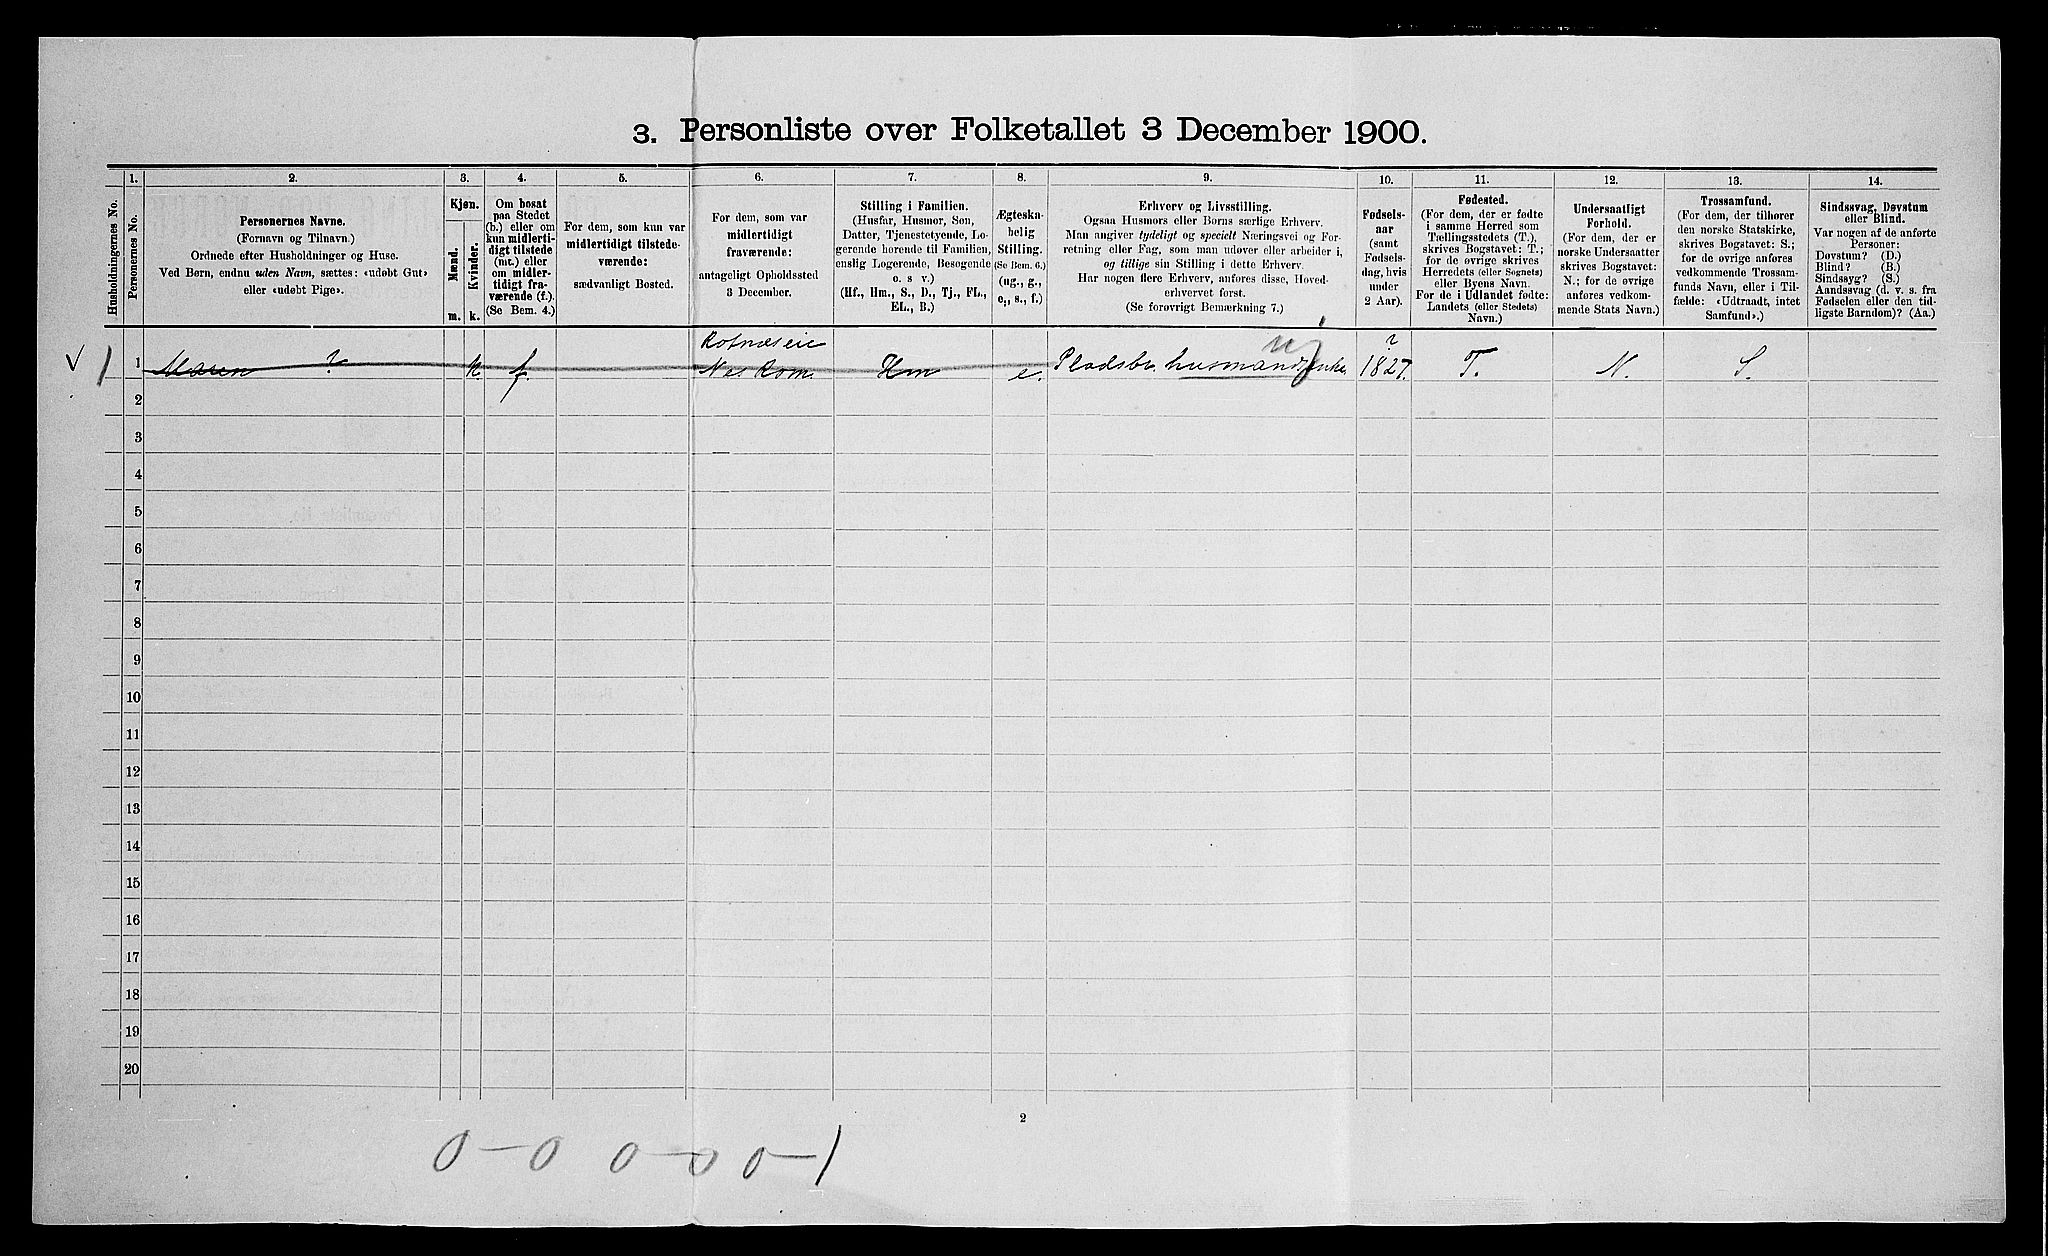 3. Personliste over Folketallet 3 December 1900.
Husholdningernes No.
1.
Personernes No.
2.
Personernes Navne.
(Fornavn og Tilnavn.)
Ordnede efter Husholdninger og Huse.
Ved Børn, endnu uden Navn, sættes: «udøbt Gut»
eller «udøbt Pige».
3.
Kjøn.
Mænd.
Kvinder.
m.
k.
4.
Om bosat
paa Stedet
(b.) eller om
kun midlerti-
digt tilstede
(mt.) eller
om midler-
tidigt fra-
værende (f.).
(Se Bem. 4.)
5.
For dem, som kun var
midlertidigt tilstede-
værende:
sædvanligt Bosted.
6.
For dem, som var
midlertidigt
fraværende:
antageligt Opholdssted
3 December.
7.
Stilling i Familien.
(Husfar, Husmor, Søn,
Datter, Tjenestetyende, Lo-
gerende hørende til Familien,
enslig Logerende, Besøgende
o. s v.)
(Hf., Hm., S., D., Tj., FL.,
EL., B.)
8.
Ægteska-
belig
Stilling.
(Se Bem. 6.)
(ug., g.,
e., s., f.)
9.
Erhverv og Livsstilling.
Ogsaa Husmors eller Børns særlige Erhverv.
Man angiver tydeligt og specielt Næringsvei og For-
retning eller Fag, som man udøver eller arbeider i,
og tillige sin Stilling i dette Erhverv.
Har nogen flere Erhverv, anføres disse, Hoved-
erhvervet først.
(Se forøvrigt Bemærkning 7.)
10.
Fødsels-
aar
(samt
Fødsels-
dag, hvis
under
2 Aar).
11.
Fødested.
(For dem, der er fødte
i samme Herred som
Tællingsstedets (T.),
skrives Bogstavet: T.;
for de øvrige skrives
Herredets (eller Sognets)
eller Byens Navn.
For de i Udlandet fødte:
Landets (eller Stedets)
Navn.)
12.
Undersaatligt
Forhold.
(For dem, der er
norske Undersaatter
skrives Bogstavet:
N.; for de øvrige
anføres vedkom-
mende Stats Navn.)
13.
Trossamfund.
(For dem, der tilhører
den norske Statskirke,
skrives Bogstavet: S.;
for de øvrige anføres
vedkommende Trossam-
funds Navn, eller i Til-
fælde: «Udtraadt, intet
Samfund».)
14.
Sindssvag, Døvstum
eller Blind.
Var nogen af de anførte
Personer:
Døvstum? (D.)
Blind? (B.)
Sindssyg? (S.)
Aandssvag (d. v. s. fra
Fødselen eller den tid-
ligste Barndom)? (Aa.)
Rotnæseie ?
V 1 1 Maren ? k. f. Nes Rom. Hm e. Pladsbr. husmands enke 1827. T. N. S.
2
3
4
5
6
7
8
9
10
11
12
13
14
15
16
17
18
19
20
2
0-0 0-0 0-1